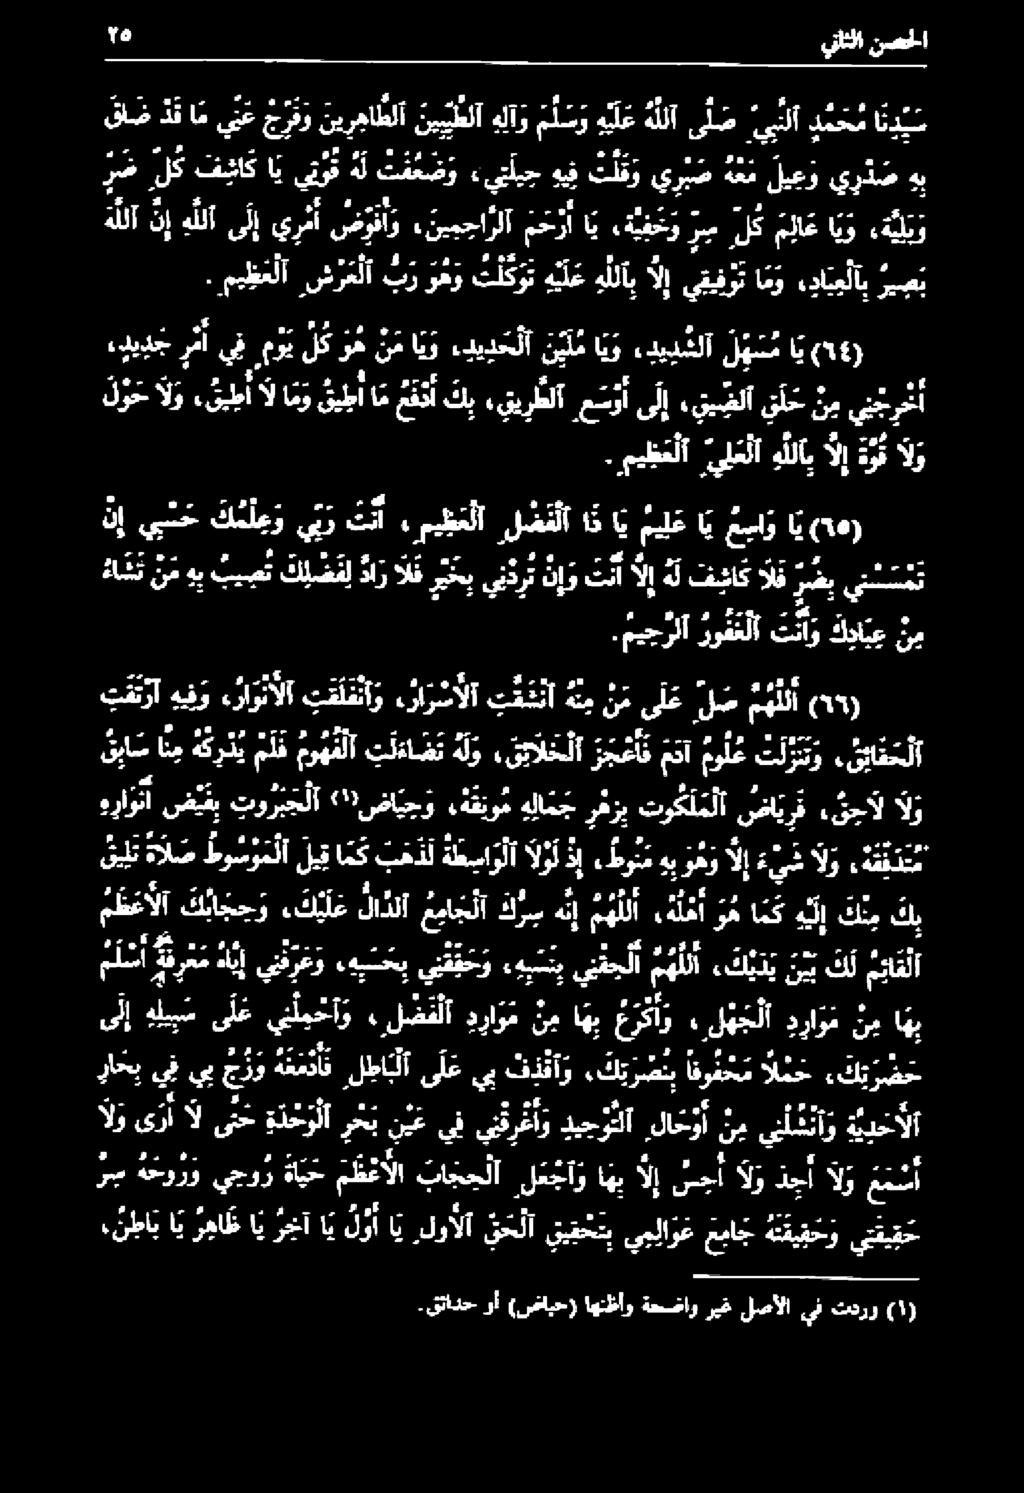 الحصن الثاني ٢٥
سَيِّدِنَا مُحَمَّدٍ ٱلنَّبِيِّ صَلَّى ٱللَّهُ عَلَيْهِ وَسَلَّمَ وَآلِهِ ٱلطَّيِّبِينَ ٱلطَّاهِرِينَ وَفَرِّجْ عَنِّي مَا قَدْ ضَاقَ
بِهِ صَدْرِي وَعِيلَ مَعَهُ صَبْرِي وَقَلَّتْ فِيهِ حِيلَتِي، وَضَعُفَتْ لَهُ قُوَّتِي يَا كَاشِفَ كُلِّ ضُرٍّ
وَبَلِيَّةٍ، وَيَا عَالِمَ كُلِّ سِرٍّ وَخَفِيَّةٍ، يَا أَرْحَمَ ٱلرَّاحِمِينَ، وَأُفَوِّضُ أَمْرِي إِلَى ٱللَّهِ إِنَّ ٱللَّهَ
بَصِيرٌ بِٱلْعِبَادِ، وَمَا تَوْفِيقِي إِلَّا بِٱللَّهِ عَلَيْهِ تَوَكَّلْتُ وَهُوَ رَبُّ ٱلْعَرْشِ ٱلْعَظِيمِ.
(٦٤) يَا مُسَهِّلَ ٱلشَّدِيدِ، وَيَا مُلَيِّنَ ٱلْحَدِيدِ، وَيَا مَنْ هُوَ كُلَّ يَوْمٍ فِي أَمْرٍ جَدِيدٍ،
أَخْرِجْنِي مِنْ حَلَقِ ٱلضِّيقِ، إِلَى أَوْسَعِ ٱلطَّرِيقِ، بِكَ أَدْفَعُ مَا أُطِيقُ وَمَا لَا أُطِيقُ، وَلَا حَوْلَ
وَلَا قُوَّةَ إِلَّا بِٱللَّهِ ٱلْعَلِيِّ ٱلْعَظِيمِ.
(٦٥) يَا وَاسِعُ يَا عَلِيمُ يَا ذَا ٱلْفَضْلِ ٱلْعَظِيمِ، أَنْتَ رَبِّي وَعِلْمُكَ حَسْبِي إِنْ
تَمْسَسْنِي بِضُرٍّ فَلَا كَاشِفَ لَهُ إِلَّا أَنْتَ وَإِنْ تُرِدْنِي بِخَيْرٍ فَلَا رَادَّ لِفَضْلِكَ تُصِيبُ بِهِ مَنْ تَشَاءُ
مِنْ عِبَادِكَ وَأَنْتَ ٱلْغَفُورُ ٱلرَّحِيمُ.
(٦٦) أَللَّهُمَّ صَلِّ عَلَى مَنْ مِنْهُ ٱنْشَقَّتِ ٱلْأَسْرَارُ، وَٱنْفَلَقَتِ ٱلْأَنْوَارُ، وَفِيهِ ٱرْتَقَتِ
ٱلْحَقَائِقُ، وَتَنَزَّلَتْ عُلُومُ آدَمَ فَأَعْجَزَ ٱلْخَلَائِقَ، وَلَهُ تَضَاءَلَتِ ٱلْفُهُومُ فَلَمْ يُدْرِكْهُ مِنَّا سَابِقٌ
وَلَا لَاحِقٌ، فَرِيَاضُ ٱلْمَلَكُوتِ بِزَهْرِ جَمَالِهِ مُونِقَةٌ، وَحِيَاضُ(١) ٱلْجَبَرُوتِ بِفَيْضِ أَنْوَارِهِ
مُتَدَفِّقَةٌ، وَلَا شَيْءَ إِلَّا وَهُوَ بِهِ مَنُوطٌ، إِذْ لَوْلَا ٱلْوَاسِطَةُ لَذَهَبَ كَمَا قِيلَ ٱلْمَوْسُوطُ صَلَاةً تَلِيقُ
بِكَ مِنْكَ إِلَيْهِ كَمَا هُوَ أَهْلُهُ، أَللَّهُمَّ إِنَّهُ سِرُّكَ ٱلْجَامِعُ ٱلدَّالُّ عَلَيْكَ، وَحِجَابُكَ ٱلْأَعْظَمُ
ٱلْقَائِمُ لَكَ بَيْنَ يَدَيْكَ، أَللَّهُمَّ أَلْحِقْنِي بِنَسَبِهِ، وَحَقِّقْنِي بِحَسَبِهِ، وَعَرِّفْنِي إِيَّاهُ مَعْرِفَةً أَسْلَمُ
بِهَا مِنْ مَوَارِدِ ٱلْجَهْلِ، وَأَكْرَعُ بِهَا مِنْ مَوَارِدِ ٱلْفَضْلِ، وَٱحْمِلْنِي عَلَى سَبِيلِهِ إِلَى
حَضْرَتِكَ، حَمْلًا مَحْفُوفًا بِنُصْرَتِكَ، وَٱقْذِفْ بِي عَلَى ٱلْبَاطِلِ فَأَدْمَغَهُ وَزُجَّ بِي فِي بِحَارِ
ٱلْأَحَدِيَّةِ وَٱنْشُلْنِي مِنْ أَوْحَالِ ٱلتَّوْحِيدِ وَأَغْرِقْنِي فِي عَيْنِ بَحْرِ ٱلْوَحْدَةِ حَتَّى لَا أَرَى وَلَا
أَسْمَعَ وَلَا أَجِدَ وَلَا أُحِسَّ إِلَّا بِهَا وَٱجْعَلِ ٱلْحِجَابَ ٱلْأَعْظَمَ حَيَاةَ رُوحِي وَرُوحَهُ سِرَّ
حَقِيقَتِي وَحَقِيقَتَهُ جَامِعَ عَوَالِمِي بِتَحْقِيقِ ٱلْحَقِّ ٱلْأَوَّلِ يَا أَوَّلُ يَا آخِرُ يَا ظَاهِرُ يَا بَاطِنُ،
(١) وردت في الأصل غير واضحة وأظنها (حياض) أو حدائق.